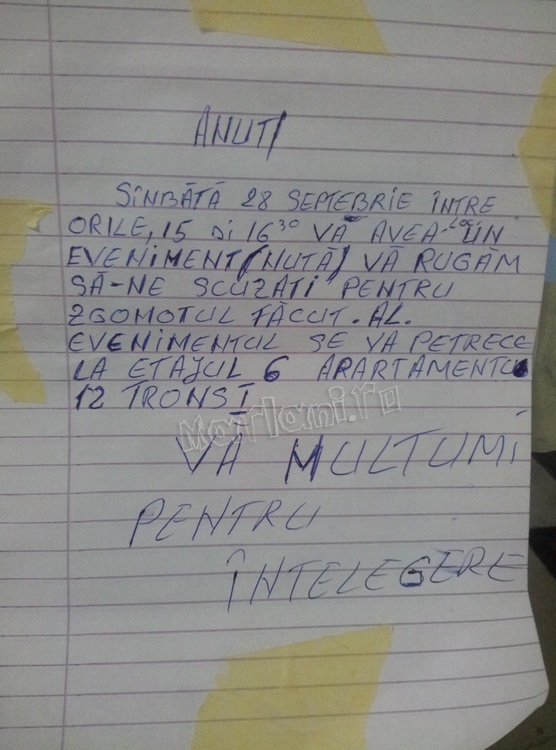 ANUTI
SÎNBĂTĂ 28 SEPTEBRIE ÎNTRE
ORILE, 15 DI 16³⁰ VA AVEA LOC UN
EVENIMENT (NUTĂ) VĂ RUGĂM
SĂ-NE SCUZATI PENTRU
ZGOMOTUL FĂCUT. AL.
EVENIMENTUL SE VA PETRECE
LA ETAJUL 6 APARTAMENTUL
12 TRONS I
Marlani.ro
VĂ MULTUMI
PENTRU
ÎNTELEGERE